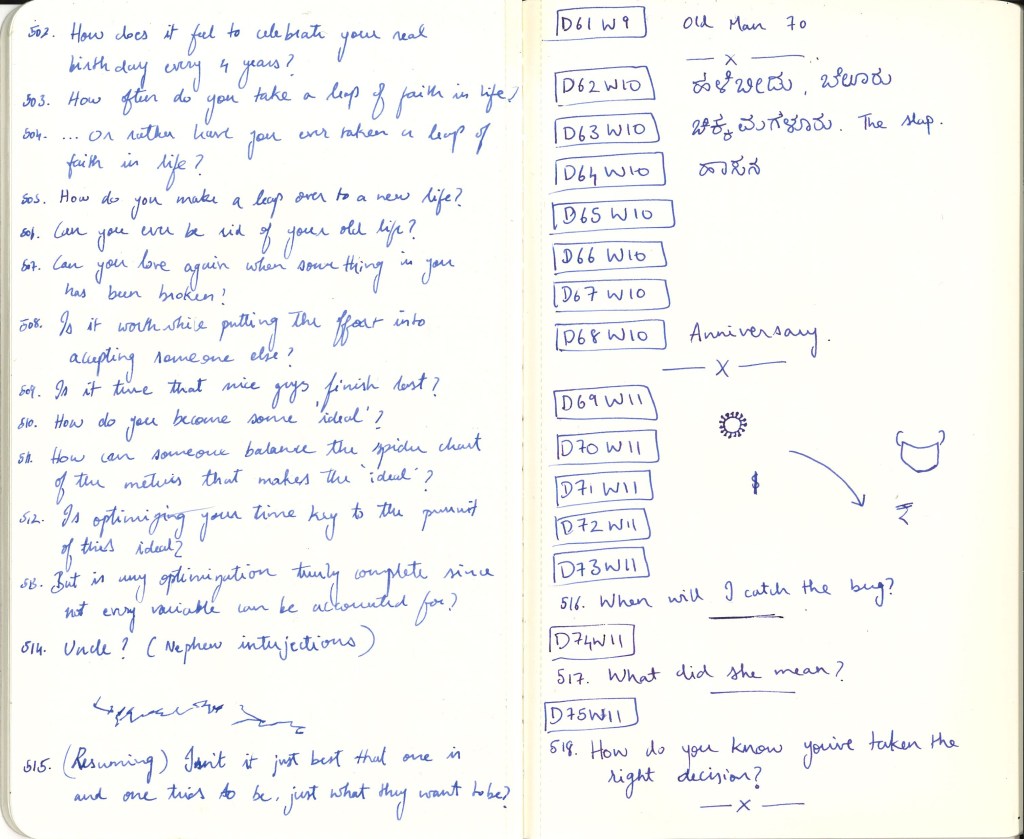 502. How does it feel to celebrate your real
birthday every 4 years?
503. How often do you take a leap of faith in life?
504. ... or rather have you ever taken a leap of
faith in life?
505. How do you make a leap over to a new life?
506. Can you ever be rid of your old life?
507. Can you love again when something in you
has been broken?
508. Is it worthwhile putting the effort into
accepting someone else?
509. Is it true that nice guys finish last?
510. How do you become some 'ideal'?
511. How can someone balance the spider chart
of the metrics that makes the 'ideal'?
512. Is optimizing your time key to the pursuit
of this ideal?
513. But is any optimization truly complete since
not every variable can be accounted for?
514. Uncle? (Nephew interjections)
515. (Resuming) Isn't it just best that one is
and one tries to be, just what they want to be?
D61 W9 Old Man 70
X
D62 W10 ಹಳೆಬೀಡು, ಬೆಲೂರು
D63 W10 ಚಿಕ್ಕಮಗಳೂರು. The slap.
D64 W10 ಹಾಸನ
D65 W10
D66 W10
D67 W10
D68 W10 Anniversary.
X
D69 W11
D70 W11
D71 W11 $
D72 W11 ₹
D73 W11
516. When will I catch the bug?
D74 W11
517. What did she mean?
D75 W11
518. How do you know you've taken the
right decision?
X